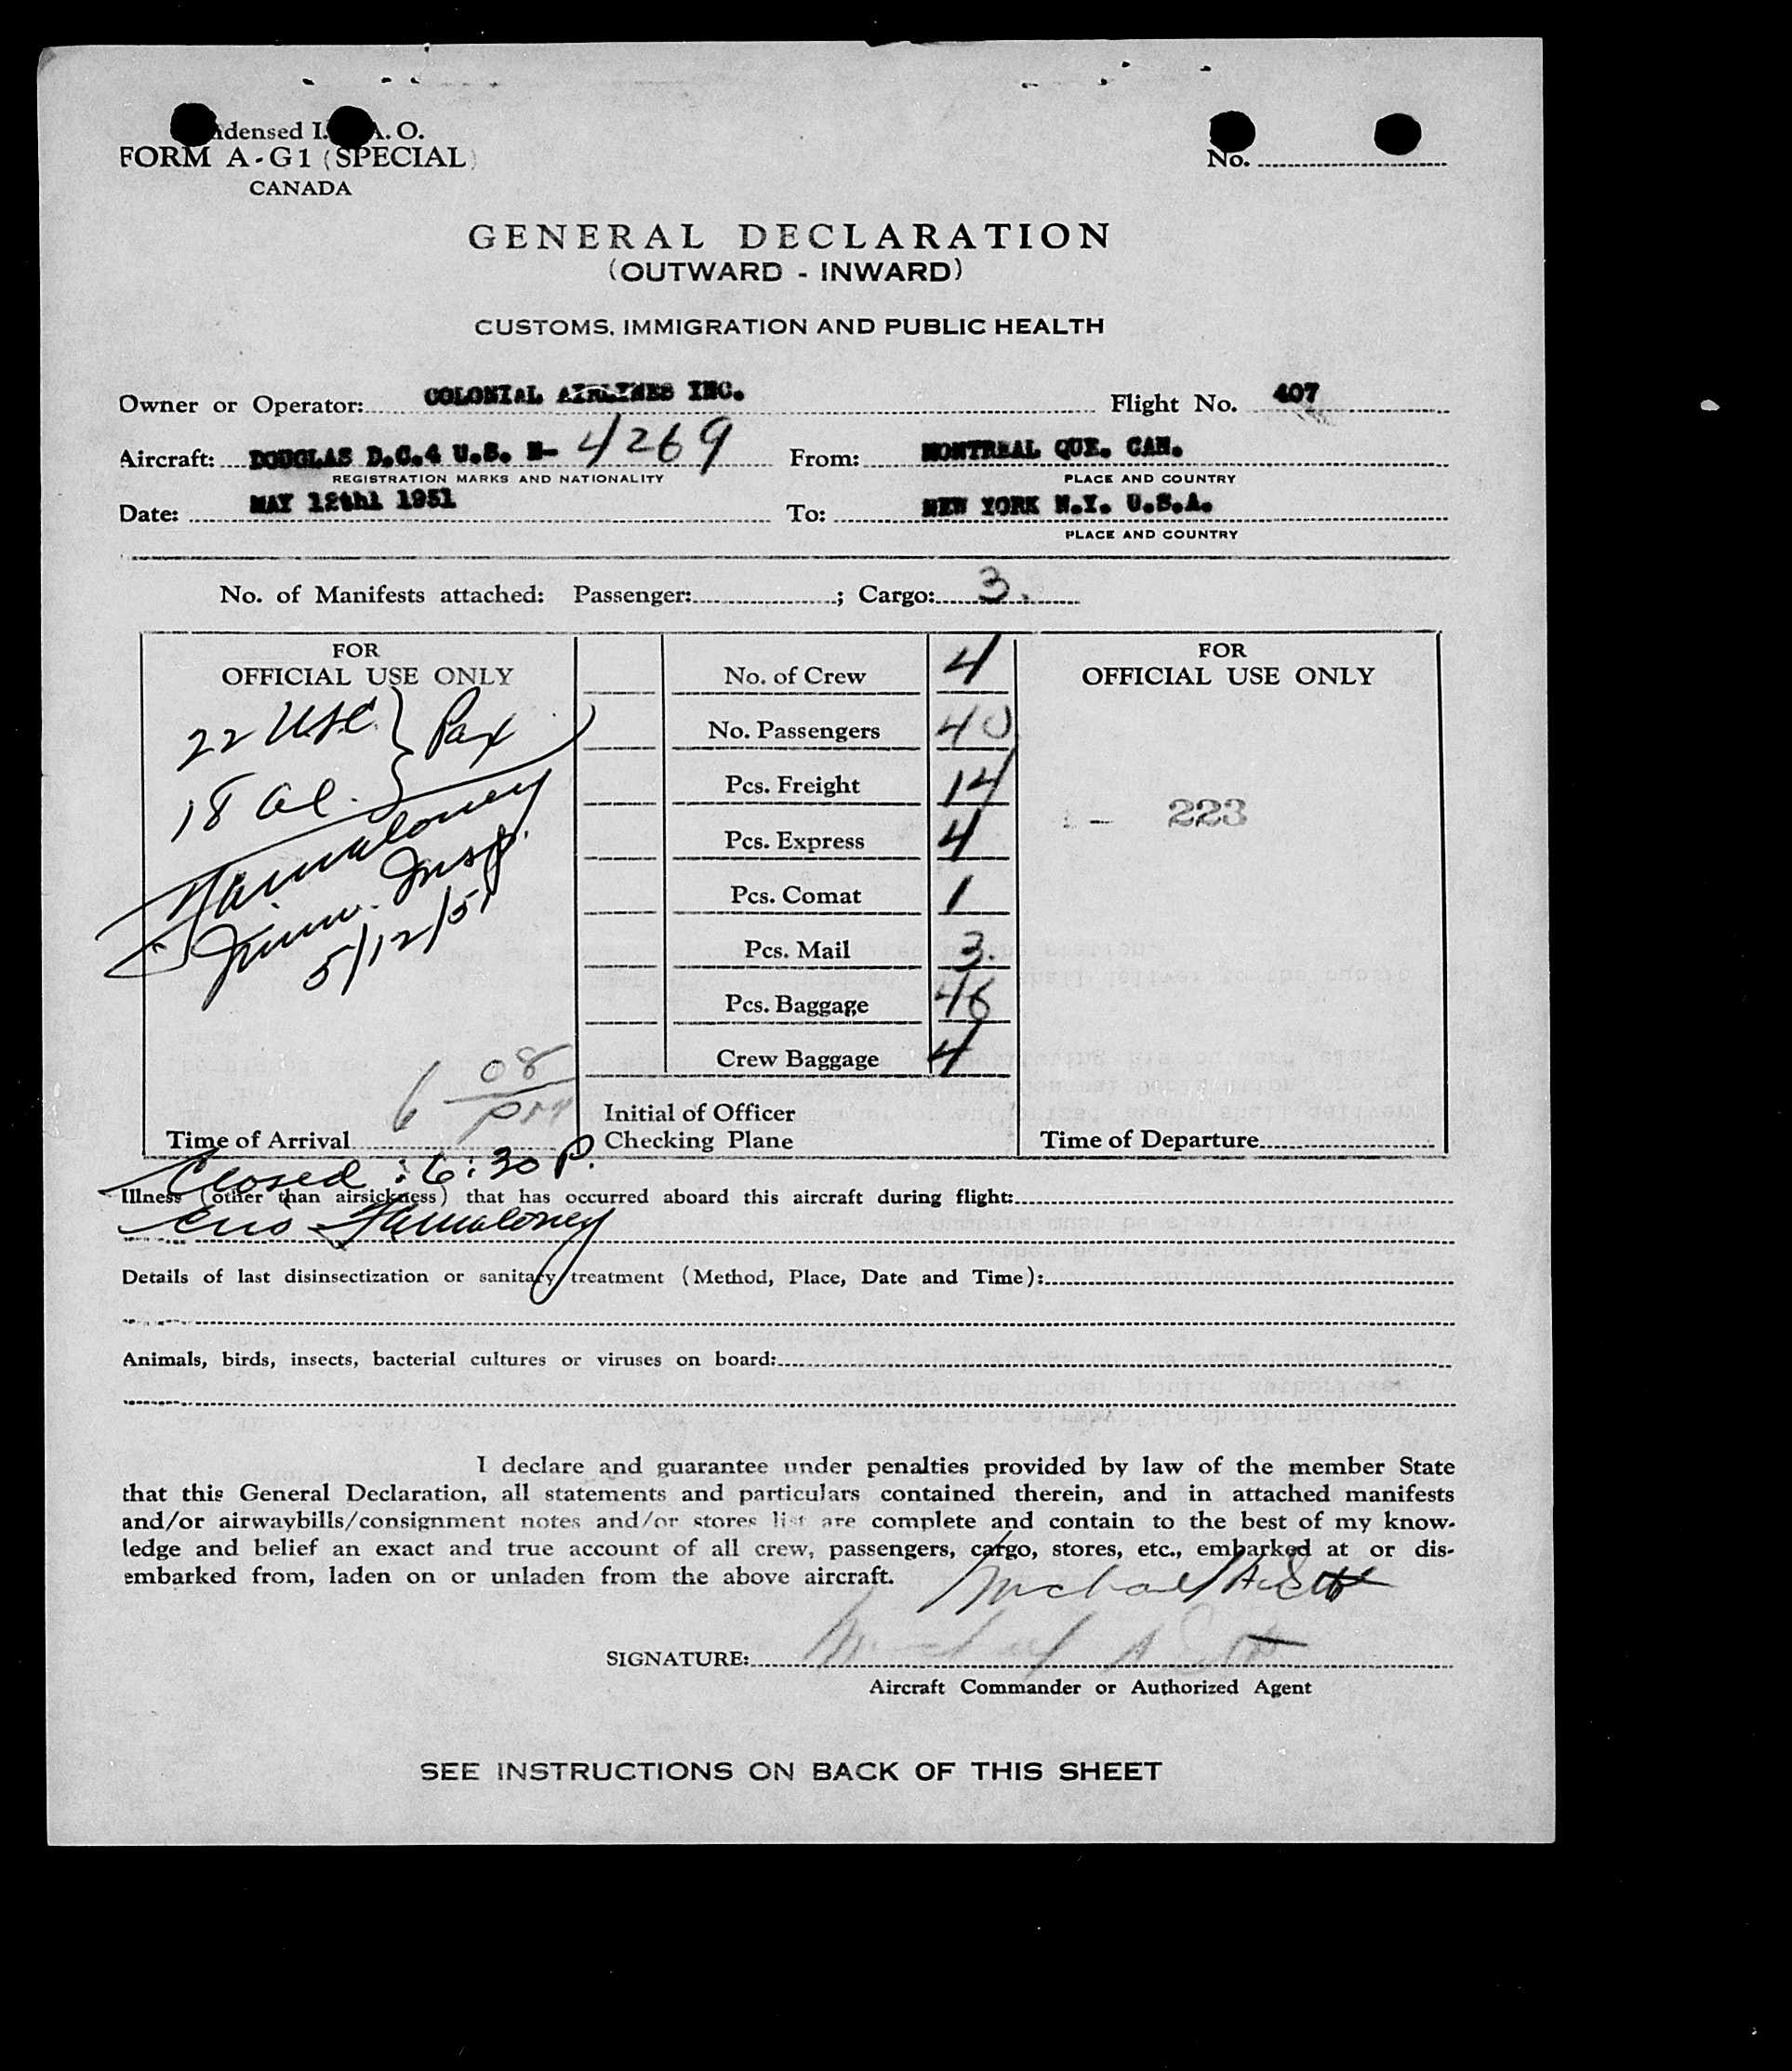 ndensed I. A. O.
FORM A-G1 (SPECIAL)
CANADA
No.
GENERAL DECLARATION
(OUTWARD - INWARD)
CUSTOMS, IMMIGRATION AND PUBLIC HEALTH
Owner or Operator: COLONIAL AIRLINES INC. Flight No. 407
Aircraft: DOUGLAS D.C.4 U.S. N- 4269 From: MONTREAL QUE. CAN.
REGISTRATION MARKS AND NATIONALITY PLACE AND COUNTRY
Date: MAY 12th1 1951 To: NEW YORK N.Y. U.S.A.
PLACE AND COUNTRY
No. of Manifests attached: Passenger: ; Cargo: 3.
FOR
OFFICIAL USE ONLY
22 USC } Pax
18 Al.
Immi. Insp.
5/12/51
6 08 PM
Time of Arrival
No. of Crew 4
No. Passengers 40
Pcs. Freight 14
Pcs. Express 4
Pcs. Comat 1
Pcs. Mail 3.
Pcs. Baggage 46
Crew Baggage 4
Initial of Officer
Checking Plane
FOR
OFFICIAL USE ONLY
- 223
Time of Departure
Closed : 6:30 P.
Illness (other than airsickness) that has occurred aboard this aircraft during flight:
Details of last disinsectization or sanitary treatment (Method, Place, Date and Time):
Animals, birds, insects, bacterial cultures or viruses on board:
I declare and guarantee under penalties provided by law of the member State
that this General Declaration, all statements and particulars contained therein, and in attached manifests
and/or airwaybills/consignment notes and/or stores list are complete and contain to the best of my know-
ledge and belief an exact and true account of all crew, passengers, cargo, stores, etc., embarked at or dis-
embarked from, laden on or unladen from the above aircraft.
Michael
SIGNATURE: Michael
Aircraft Commander or Authorized Agent
SEE INSTRUCTIONS ON BACK OF THIS SHEET